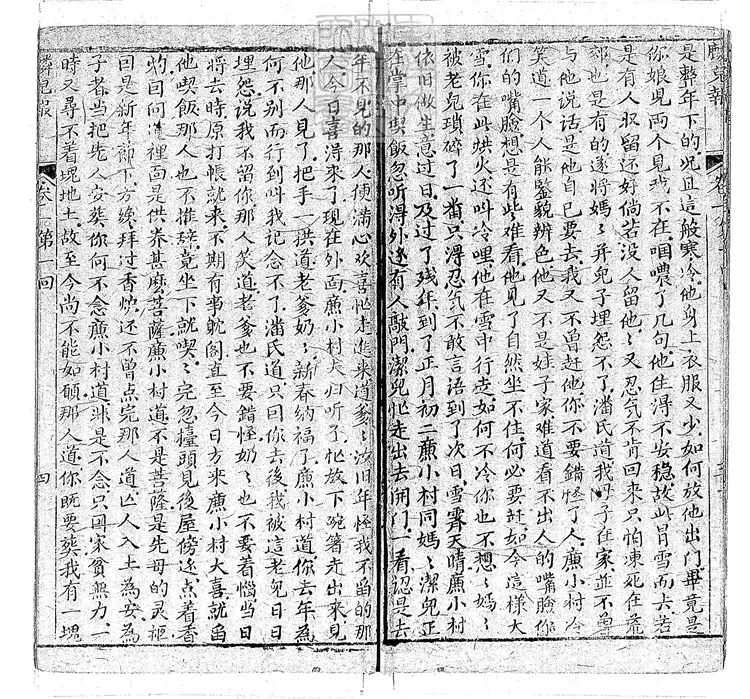 是寒年下的況且這般寒冷他身上衣服又少如何放他出門畢竟是
你娘兒兩个見我不在咱噥了几句他住得不安穩故此冐雪而去若
是有人収留还好倘若没人留他他又忍氣不肯回来只怕凍死在荒
郊也是有的遂將媽媽并兒子埋怨不了潘氏道我母子在家並不曾
与他说话是他自已要去我又不曾赶他你不要錯怪了人㢘小村冷
笑道一个人能鑒貌辨色他又不是娃子家难道看不出人的嘴臉你
们的嘴臉想是有些难看他見了自然坐不住何必要赶如今這様大
雪你在此烘火还叫冷哩他在雪中行走如何不冷你也不想想媽媽
被老兒瑣碎了一畨只淂忍气不敢言语到了次日雪霽天晴㢘小村
依旧做生意过日及过了残年到了正月初二㢘小村同媽媽潔兒正
在堂中喫飯忽听得外边有人敲門潔兒忙走出去開门一看認是去
年不見的那人便滿心欢喜忙走進来道爹爹汝旧年怪我不留的那
人今日喜得来了現在外面㢘小村大归听了忙放下碗箸走出来見
他那人見了把手一拱道老爹奶奶新春纳福了㢘小村道你去年為
何不别而行到叫我记念不了潘氏道只因你去後我被這老兒日日
埋怨说我不留你那人笑道老爹也不要錯怪奶奶也不要着惱当日
將去時原打帳就来不期有事躭阁直至今日方来㢘小村大喜就畄
他喫飯那人也不推辞竟坐下就喫喫完忽擡頭見後屋傍边点着香
灼因问道裡面是供养甚麽菩薩㢘小村道不是菩薩是先母的灵柩
因是新年節下方纔拜过香灼还不曾点完那人道亡人入土為安為
子者当把先人安葬你何不念㢘小村道非是不念只因家貧無力一
時又尋不着塊地土故至今尚不能如願那人道你既要葬我有一塊
麟兒報
卷一第一回
四